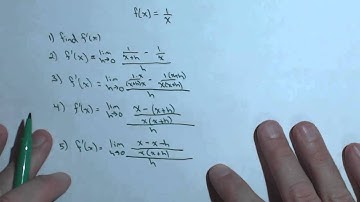 f(x) = 1/x
1) find f'(x)
2) f'(x) = lim h→0 (1/(x+h) - 1/x)/h
3) f'(x) = lim h→0 (1·x/((x+h)x) - 1(x+h)/(x(x+h)))/h
4) f'(x) = lim h→0 ((x-(x+h))/(x(x+h)))/h
5) f'(x) = lim h→0 ((x-x-h)/(x(x+h)))/h